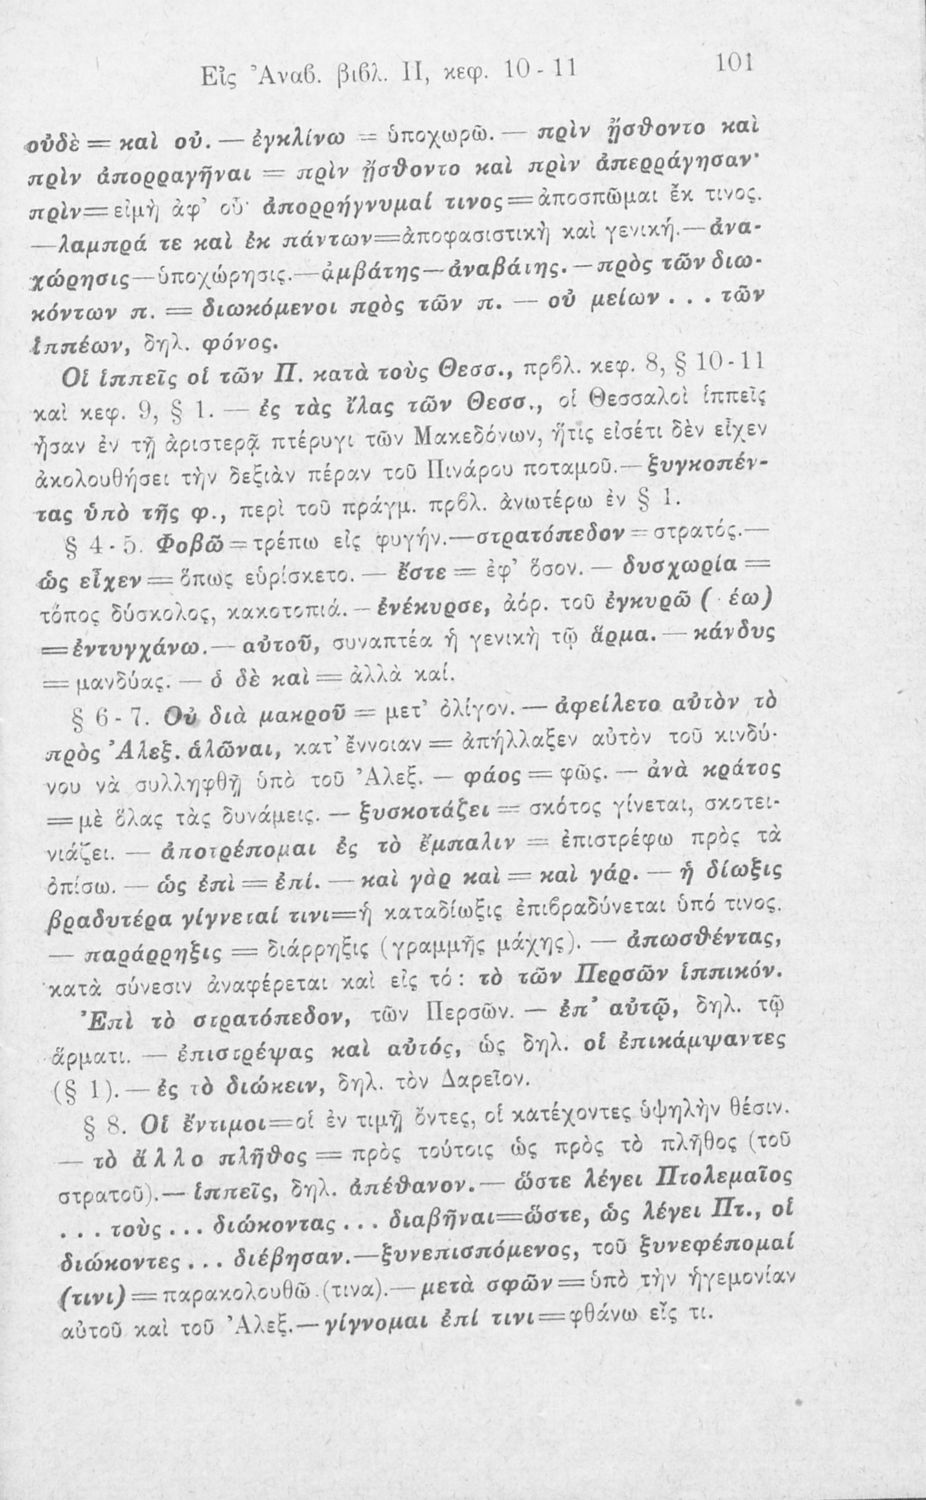 Εἰς Ἀναβ. βιβλ. II, κεφ. 10 - 11 101
οὐδὲ = καὶ οὐ. — ἐγκλίνω = ὑποχωρῶ. — πρὶν ᾔσθοντο καὶ
πρὶν ἀπορραγῆναι = πρὶν ᾔσθοντο καὶ πρὶν ἀπερράγησαν·
πρὶν=εἰμὴ ἀφ’ οὗ· ἀπορρήγνυμαί τινος=ἀποσπῶμαι ἔκ τινος.
—λαμπρά τε καὶ ἐκ πάντων=ἀποφασιστικὴ καὶ γενική.— ἀνα-
χώρησις—ὑποχώρησις.—ἀμβάτης—ἀναβάτης.—πρὸς τῶν διω-
κόντων π. = διωκόμενοι πρὸς τῶν π. — οὐ μείων . . . τῶν
ἱππέων, δηλ. φόνος.
Οἱ ἱππεῖς οἱ τῶν Π. κατὰ τοὺς Θεσσ., πρβλ. κεφ. 8, § 10-11
καὶ κεφ. 9, § 1. — ἐς τὰς ἴλας τῶν Θεσσ., οἱ Θεσσαλοὶ ἱππεῖς
ἦσαν ἐν τῇ ἀριστερᾷ πτέρυγι τῶν Μακεδόνων, ἥτις εἰσέτι δὲν εἶχεν
ἀκολουθήσει τὴν δεξιὰν πέραν τοῦ Πινάρου ποταμοῦ.— ξυγκοπέν-
τας ὑπὸ τῆς φ., περὶ τοῦ πράγμ. πρβλ. ἀνωτέρω ἐν § 1.
§ 4 - 5. Φοβῶ = τρέπω εἰς φυγήν.—στρατόπεδον = στρατός.—
ὡς εἶχεν = ὅπως εὑρίσκετο. — ἔστε = ἐφ’ ὅσον. — δυσχωρία =
τόπος δύσκολος, κακοτοπιά. — ἐνέκυρσε, ἀόρ. τοῦ ἐγκυρῶ ( έω)
=ἐντυγχάνω.— αὐτοῦ, συναπτέα ἡ γενικὴ τῷ ἅρμα. — κάνδυς
= μανδύας. — ὁ δὲ καὶ = ἀλλὰ καί.
§ 6 - 7. Οὐ διὰ μακροῦ = μετ’ ὀλίγον. — ἀφείλετο αὐτὸν τὸ
πρὸς Ἀλεξ. ἁλῶναι, κατ’ ἔννοιαν = ἀπήλλαξεν αὐτὸν τοῦ κινδύ-
νου νὰ συλληφθῇ ὑπὸ τοῦ Ἀλεξ. — φάος = φῶς. — ἀνὰ κράτος
=μὲ ὅλας τὰς δυνάμεις. — ξυσκοτάζει = σκότος γίνεται, σκοτει-
νιάζει. — ἀποτρέπομαι ἐς τὸ ἔμπαλιν = ἐπιστρέφω πρὸς τὰ
ὀπίσω. — ὡς ἐπὶ = ἐπί. — καὶ γὰρ καὶ = καὶ γάρ. — ἡ δίωξις
βραδυτέρα γίγνεταί τινι=ἡ καταδίωξις ἐπιβραδύνεται ὑπό τινος.
— παράρρηξις = διάρρηξις (γραμμῆς μάχης). — ἀπωσθέντας,
κατὰ σύνεσιν ἀναφέρεται καὶ εἰς τό: τὸ τῶν Περσῶν ἱππικόν.
Ἐπὶ τὸ στρατόπεδον, τῶν Περσῶν. — ἐπ’ αὐτῷ, δηλ. τῷ
ἅρματι. — ἐπιστρέψας καὶ αὐτός, ὡς δηλ. οἱ ἐπικάμψαντες
(§ 1).—ἐς τὸ διώκειν, δηλ. τὸν Δαρεῖον.
§ 8. Οἱ ἔντιμοι=οἱ ἐν τιμῇ ὄντες, οἱ κατέχοντες ὑψηλὴν θέσιν.
— τὸ ἄλλο πλῆθος = πρὸς τούτοις ὡς πρὸς τὸ πλῆθος (τοῦ
στρατοῦ).— ἱππεῖς, δηλ. ἀπέθανον.— ὥστε λέγει Πτολεμαῖος
. . . τοὺς . . . διώκοντας . . . διαβῆναι=ὥστε, ὡς λέγει Πτ., οἱ
διώκοντες . . . διέβησαν.—ξυνεπισπόμενος, τοῦ ξυνεφέπομαί
(τινι) = παρακολουθῶ (τινα).— μετὰ σφῶν = ὑπὸ τὴν ἡγεμονίαν
αὐτοῦ καὶ τοῦ Ἀλεξ.—γίγνομαι ἐπί τινι=φθάνω εἴς τι.